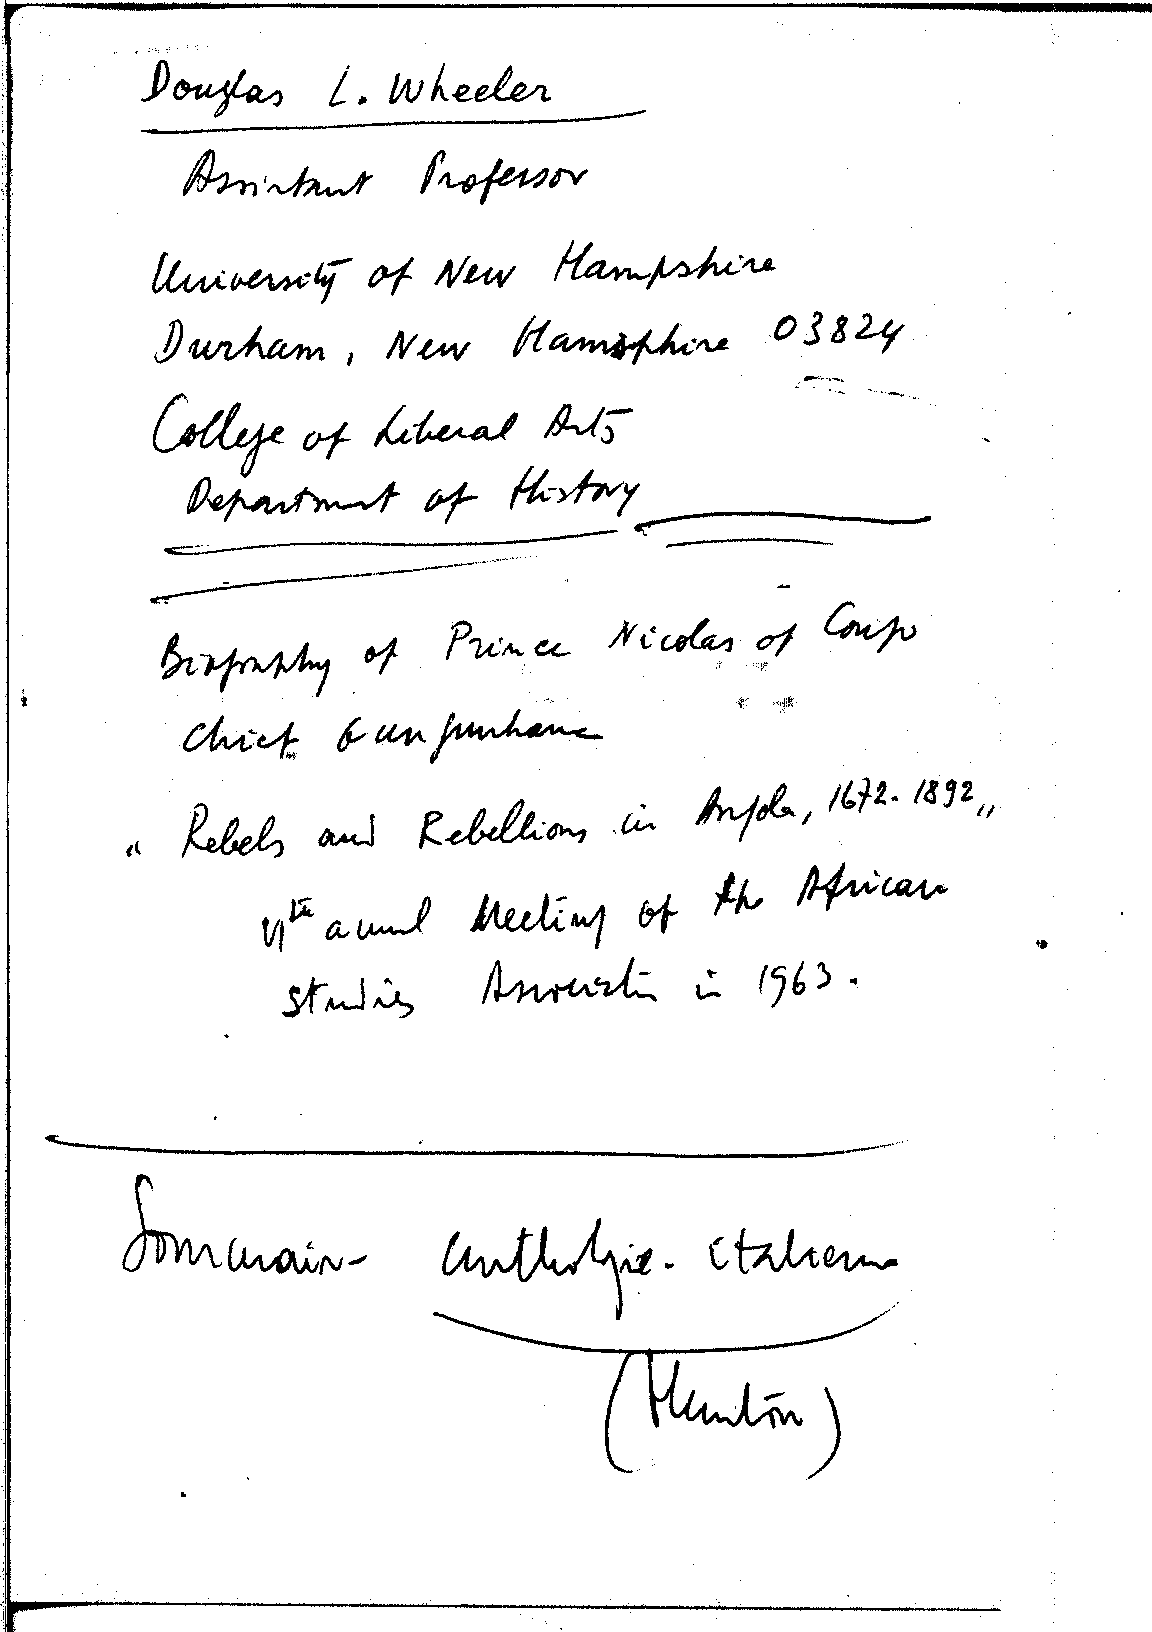 Douglas L. Wheeler
Assistant Professor
University of New Hampshire
Durham, New Hamsphire 03824
College of Liberal Arts
Department of History
Biography of Prince Nicolas of Congo
Chief Gungunhana
" Rebels and Rebellions in Angola, 1672-1892 "
annual Meeting of the African
Studies Association in 1963.
Sommaire anthologie. italienne